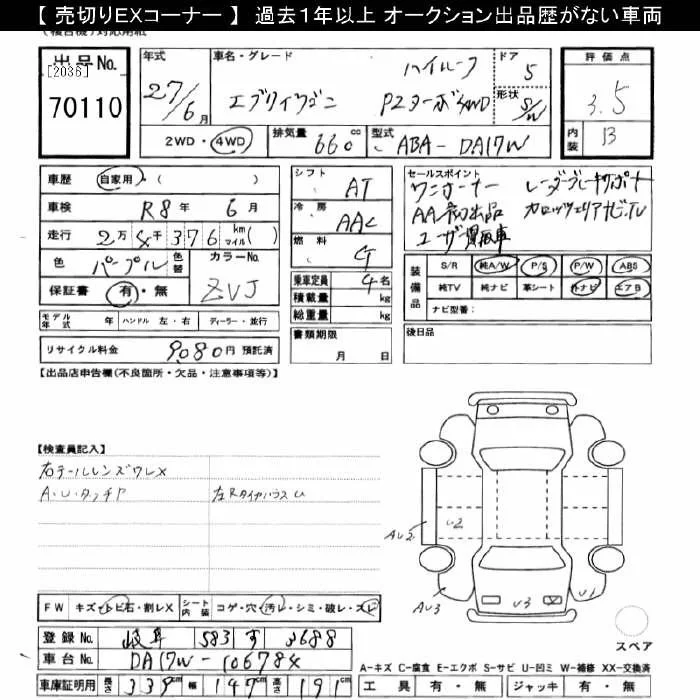 【 売切りEXコーナー 】 過去1年以上 オークション出品歴がない車両
出品No. [2036] 70110
年式 27/6月
車名・グレード エブリイワゴン ハイルーフ PZターボ 4WD
ドア 5
形状 S/W
評価点 3.5
内装 B
2WD・4WD 排気量 660cc 型式 ABA-DA17W
車歴 自家用・( )
車検 R8年 6月
走行 2万4千376 km マイル( )
色 パープル 色替 カラーNo. ZVJ
保証書 有・無
モデル年式 年 ハンドル 左・右 ディーラー・並行
リサイクル料金 9080円 預託済
シフト AT
冷房 AAC
燃料 G
乗車定員 4名
積載量 kg
総重量 kg
書類期限 月 日
セールスポイント
ワンオーナー レーダーブレーキサポート
AA初出品 カロッツェリアナビ・TV
ユーザー買取車
装備品 S/R 純A/W P/S P/W ABS
純TV 純ナビ 革シート 外ナビ エアB
ナビ型番:
後日品
【出品店申告欄(不良箇所・欠品・注意事項等)】
【検査員記入】
右テールレンズワレX
A・U・タッチヤ 左Rタイヤハウス U
AU2 U2
AU3 U3 U1
FW キズ・トビ石・割レX シート内装 コゲ・穴・汚レ・シミ・破レ・スレ
登録No. 岐阜 583 す 3688
車台No. DA17W-106784
車庫証明用 長さ 339cm 幅 147cm 高さ 191cm
スペア
A-キズ C-腐食 E-エクボ S-サビ U-凹ミ W-補修 XX-交換済
工具 有・無 ジャッキ 有・無